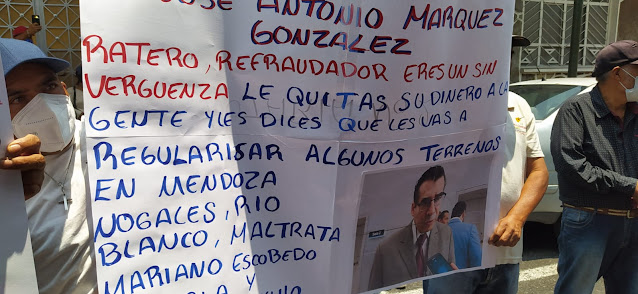 JOSE ANTONIO MARQUEZ
GONZALEZ
RATERO, REFRAUDADOR ERES UN SIN
VERGUENZA LE QUITAS SU DINERO A LA
GENTE Y LES DICES QUE LES VAS A
REGULARISAR ALGUNOS TERRENOS
EN MENDOZA
NOGALES, RIO
BLANCO, MALTRATA
MARIANO ESCOBEDO
Y